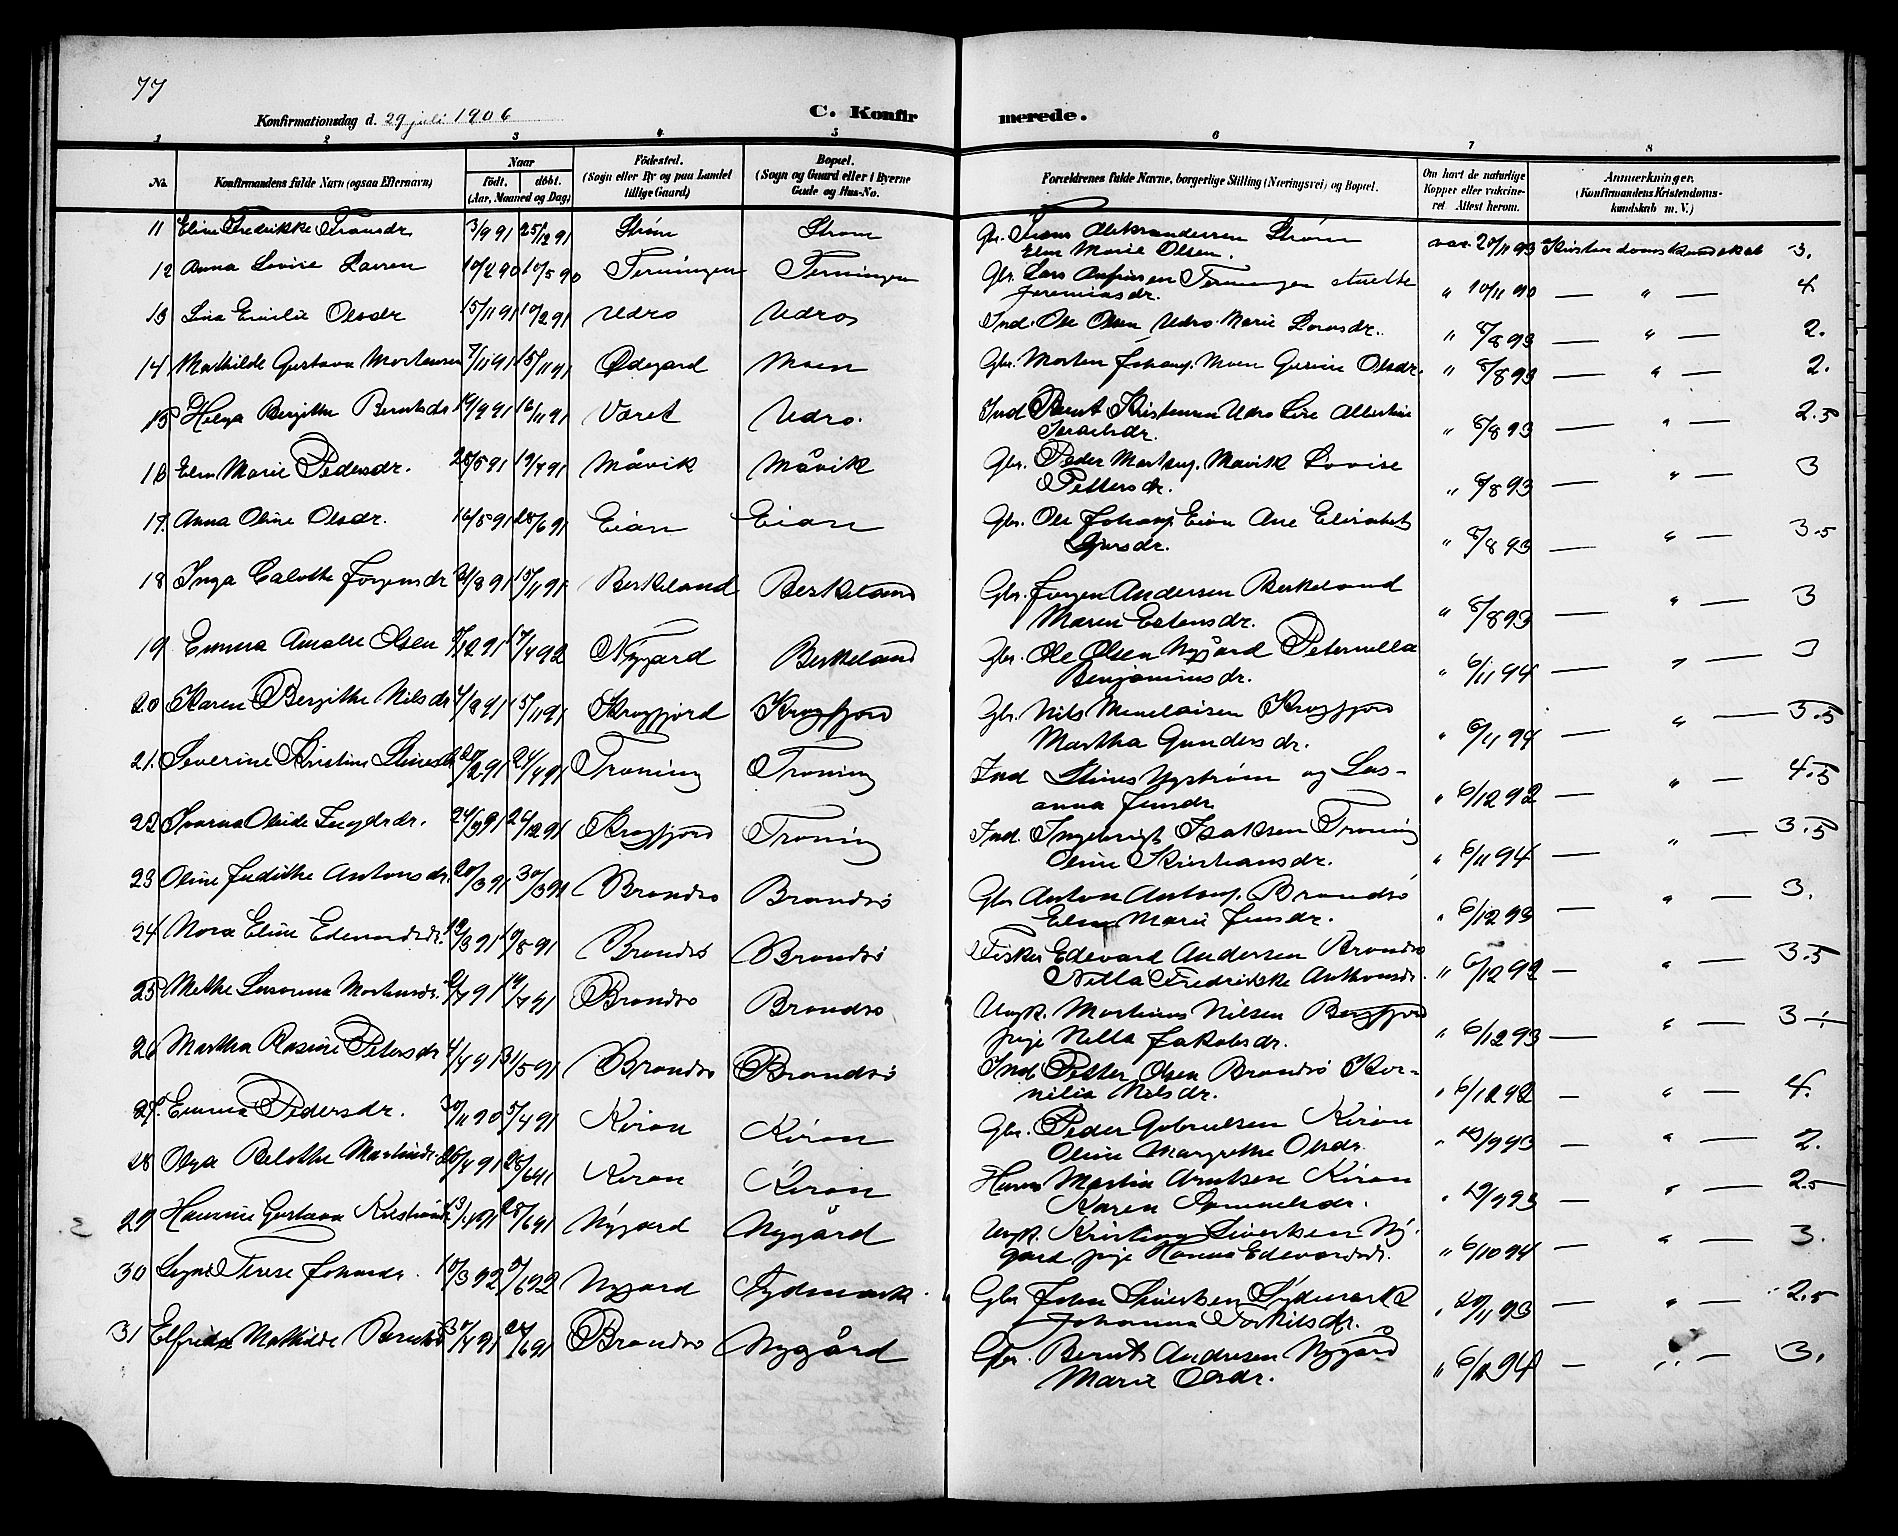 77
Konfirmationsdag d. 29 juli 1906
C. Konfirmerede.
1 2 3 4 5 6 7 8
No. Konfirmandens fulde Navn (ogsaa Efternavn) Naar födt. döbt. (Aar, Maaned og Dag) Födested. (Sogn eller By og paa Landet tillige Gaard) Bopæl. (Sogn og Gaard eller i Byerne Gade og Hus-No. Forældrenes fulde Navne, borgerlige Stilling (Næringsvei) og Bopæl. Om havt de naturlige Kopper eller vaccineret Attest herom. Anmerkninger. (Konfirmandens Kristendomskundskab m. V.)
11 Eline Fredrikke Fransdr. 3/9 91 25/12 91 Strøm Strøm Gbr. Frans Aleksandersen Strøm
Elen Marie Olsen. vac. 20/11 93 Kristendomskundskab 3.
12 Anna Lovise Larsen 10/2 90 10/5 90 Terningen Terningen Gbr. Lars Terningen
Jeremiasdr. " 10/11 90 — " — 4
13 Lina Emilie Olsdr 15/11 91 Udrø Udrø Ind. Ole Olsen Udrø. Marie Larsdr. " 8/8 93 — " — 2.
14 Mathilde Gustava Mortensen 7/11 91 15/11 91 Ødegard Moen Gbr. Morten Johans. Moen Olsdr. " 8/8 93 — " — 2.
15 Helga Bergitte Berntsdr 19/9 91 16/11 91 Været Udrø. Ind Bernt Kristensen Udrø Albertine
" 8/8 93 — " — 2.5
16 Elen Marie Pedersdr. 28/5 91 19/7 91 Måvik Måvik Gbr. Peder Måvik Lovise
Pettersdr. " 8/8 93 — " — 3
17. Anna Oline Olsdr. 16/5 91 28/6 91 Eian Eian Gbr. Ole Johans. Eian Ane Elisabet
" 8/8 93 — " — 3.5
18 Inga Jørgensdr 15/11 91 Berkeland Berkeland Gbr. Jørgen Andersen Berkeland
Maren Estensdr. " 8/8 93 — " — 3
19 Emma Amalie Olsen 17/4 92 Nygard Berkeland Gbr. Ole Olsen Nygård Peternella
Benjaminsdr. " 6/11 94 — " — 3
20 Karen Bergithe Nilsdr 4/9 91 15/11 91 Krogfjord Krogfjord Gbr. Nils Menelaisen Krogfjord
Martha Gundersdr. " 6/11 94 — " — 3.5
21. Severine Kristine 24/4 91 Troning Troning Ind Nystrøm og Susanna
Jensdr. " 6/12 92 — " — 4.5
22 24/9 91 26/12 91 Krogfjord Troning Ind. Ingebrigt Isaksen Troning
Oline Kristiansdr. " 6/11 94 — " — 3.5
23 Oline Judithe Antonsdr. 20/3 91 30/3 91 Brandsø Brandsø Gbr Anton Brandsø
Elen Marie Jensdr. " 6/12 93 — " — 3.
24 Nora Eline Edevardsdr. Brandsø Brandsø Fisker Edevard Andersen Brandsø
Nella Fredrikke Anthonsdr. " 6/12 92 — " — 3.5
25 Methe Martinusdr. 19/7 91 Brandsø Brandsø Ungk. Martinus Nilsen Bergfjord
pige Nella Jakobsdr. " 6/12 93 — " — 3
26 Martha Rasine Petersdr 4/4 91 31/5 91 Brandsø Brandsø Ind Petter Olsen Brandsø Kornilia
Nilsdr. " 6/12 92 — " — 4.
27. Emma Pedersdr. 30/11 90 5/4 91 Kiran Kiran Gbr. Peder Gabrielsen Kiran
Oline Margrethe Olsdr. " 29/9 93 — " — 2.
28 Olga Martinsdr. 26/4 91 28/6 91 Kiran Kiran Martin Arntsen Kiran
Karen Samuelsdr. " 29/9 93 — " — 2.5
29 Gustava Kristiansdr 28/6 91 Nygard Nygård Ungk. Kristian Sivertsen Nygard
pige Hanna Edevardsdr. " 6/10 94 — " — 3.
30 Signe Terese Johansdr. Nygard Sydmark. Gbr John Sivertsen Sydmark
Johanna Torkilsdr. " 20/11 93 — " — 2.5
31 Elfrida Mathilde Berntsdr 24/6 91 Brandsø Nygård Gbr. Bernt Andresen Nygård
Marie Olsdr. " 6/11 94 — " — 3.